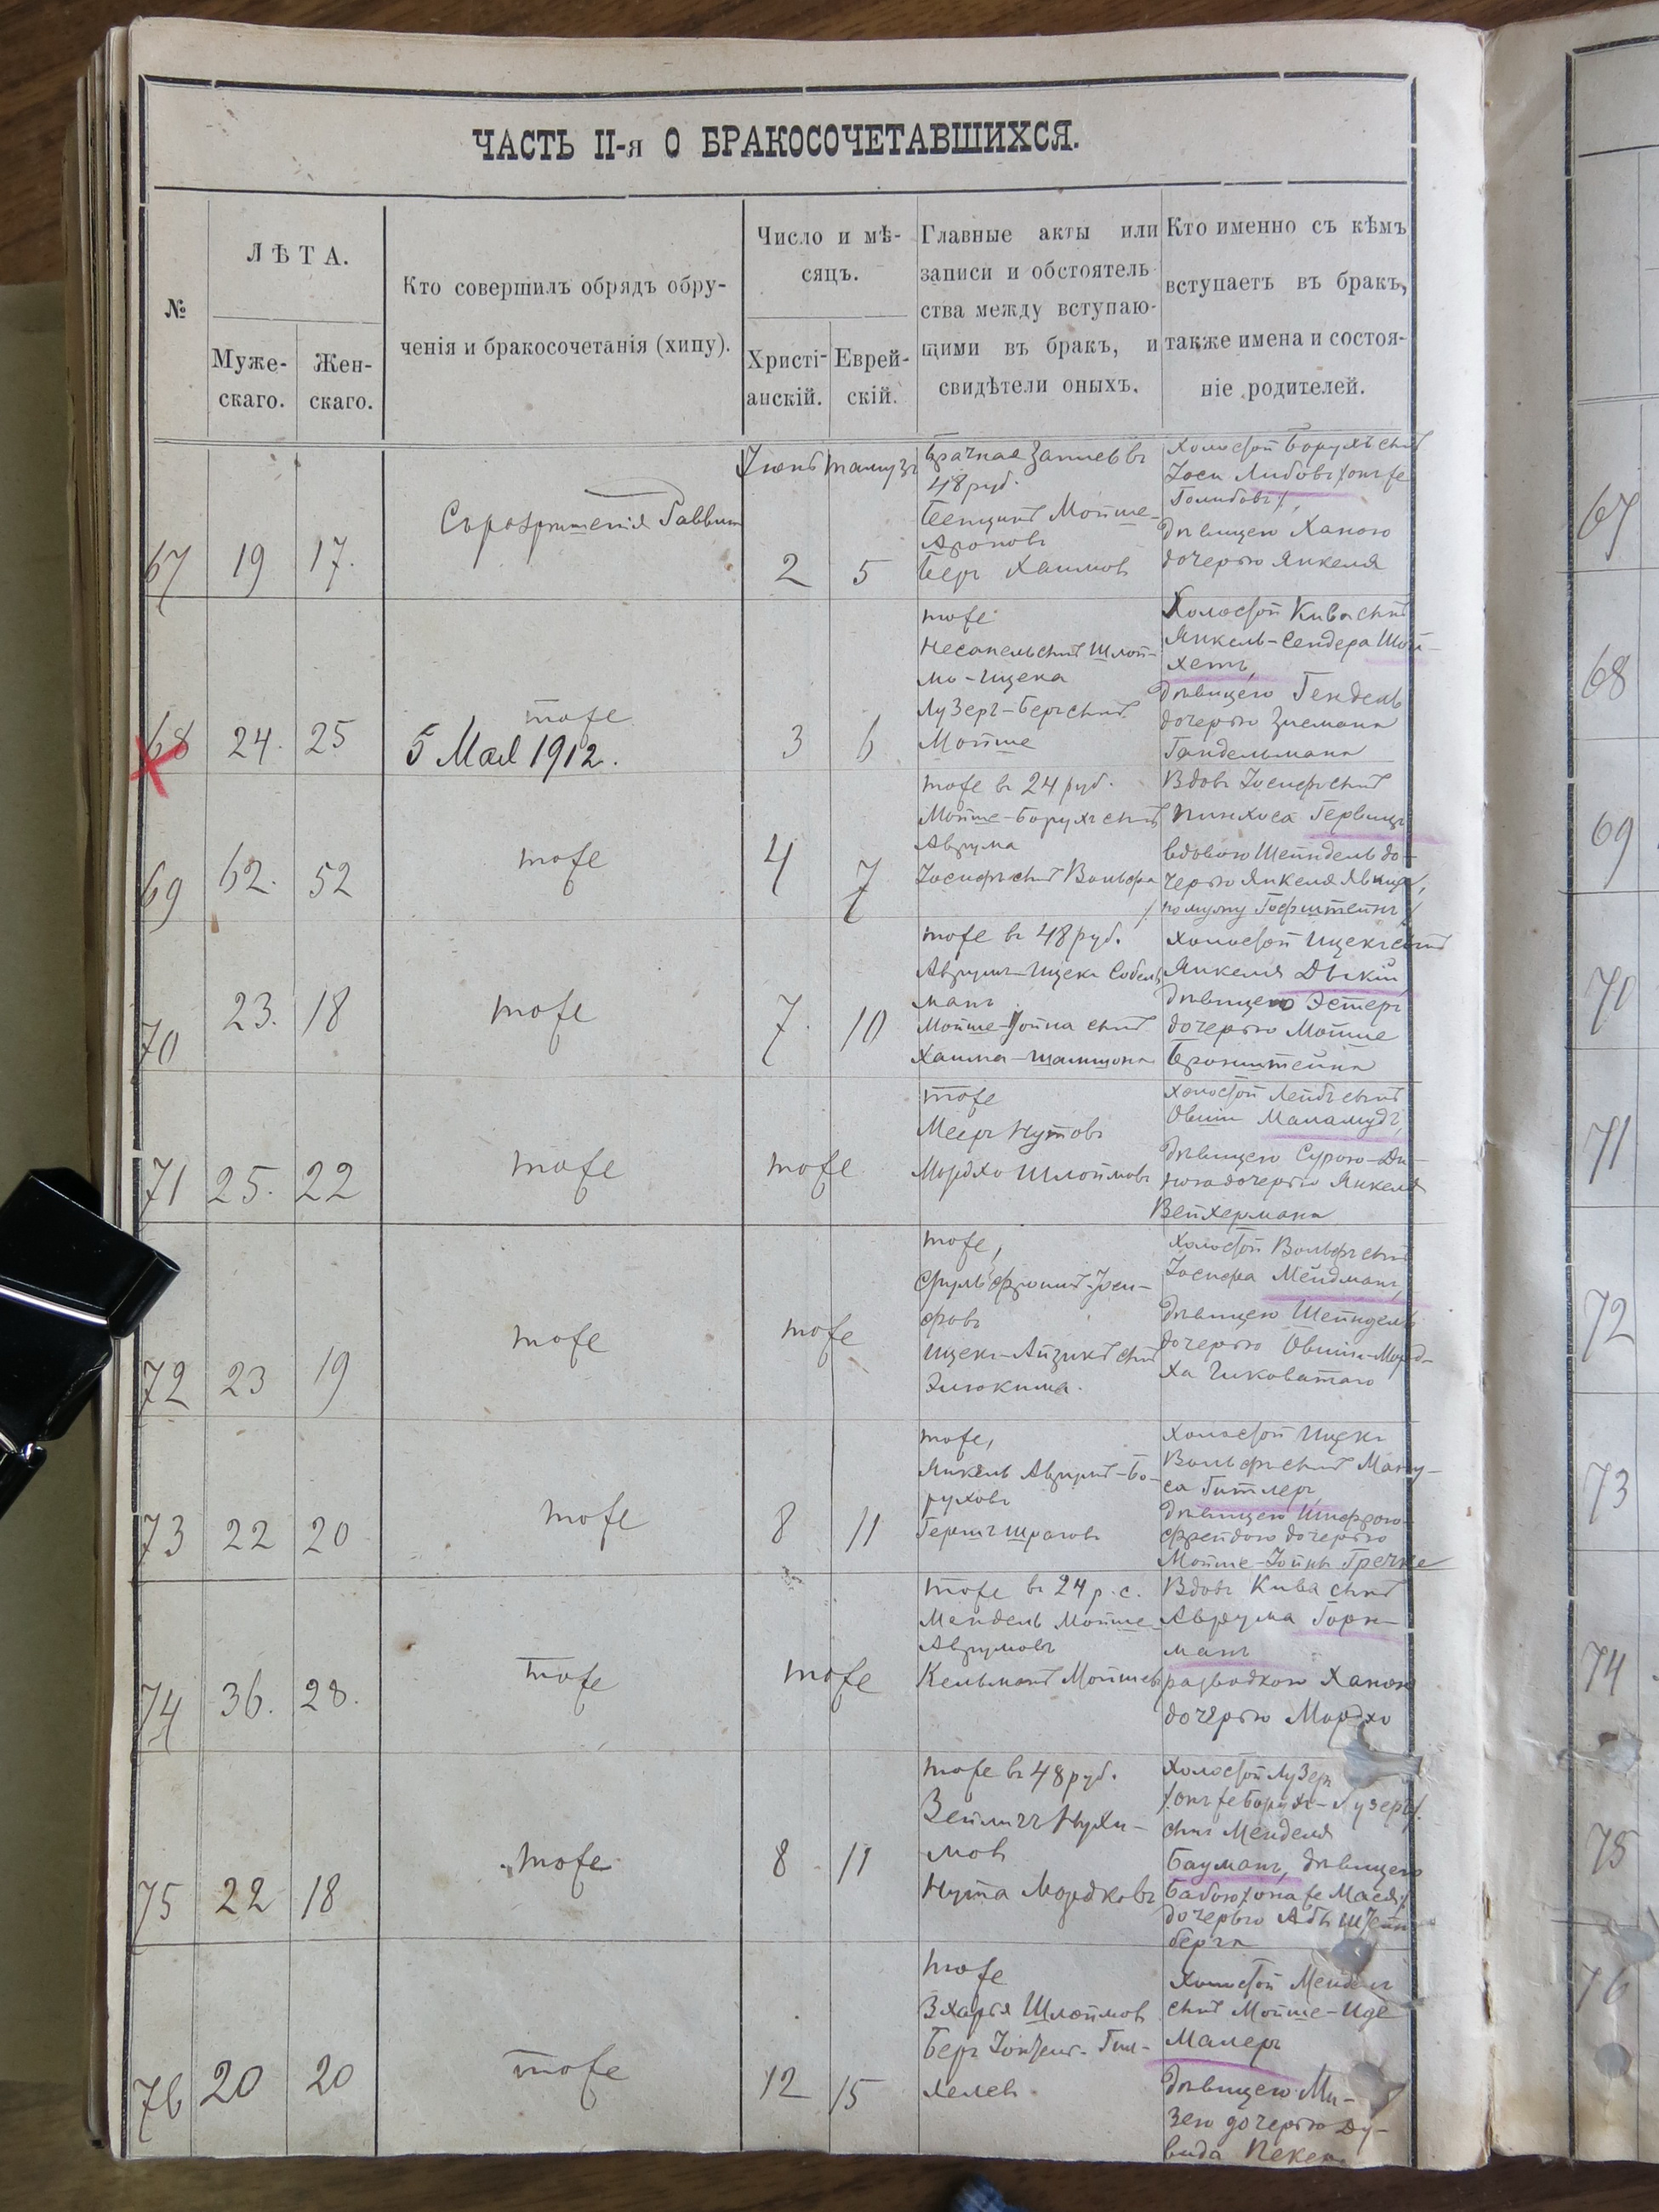 ЧАСТЬ II-я О БРАКОСОЧЕТАВШИХСЯ.
№
ЛѢТА.
Муже-
скаго.
Жен-
скаго.
Кто совершилъ обрядъ обру-
ченія и бракосочетанія (хипу).
Число и мѣ-
сяцъ.
Христі-
анскій.
Еврей-
скій.
Главные акты или
записи и обстоятель
ства между вступаю-
щими въ бракъ, и
свидѣтели оныхъ.
Кто именно съ кѣмъ
вступаетъ въ бракъ,
также имена и состоя-
ніе родителей.
67
19
17.
Съ разрѣшенія Раввина
Іюнь
Тамузъ
2
5
Брачная запись въ
48 руб.
Мойше-
Ароновъ
Беръ Хаимовъ
Холостой Борухъ сынъ
Іоси Либовъ /онъ же
Голибовъ/,
дѣвицею Ханою
дочерью Янкеля
67
68
24.
25
тоже
5 Мая 1912.
3
6
тоже
Несанель сынъ Шлой-
мо-Ицека
Лузеръ-Беръ сынъ
Мойше
Холостой Кива сынъ
Янкель-Сендера Шой-
хетъ,
дѣвицею Гендель
дочерью Зисмана
Гандельмана
68
69
62.
52
тоже
4
7
тоже въ 24 руб.
Мойше-Борухъ сынъ
Аврума
Іосифъ сынъ Вольфа
Вдовъ Іосифъ сынъ
Пинхоса Гервицъ
вдовою Шейндель до-
черью Янкеля
/по мужу Гофштейнъ/
69
70
23.
18
тоже
7.
10
тоже въ 48 руб.
Аврумъ-Ицекъ Собель
манъ
Мойше-Іойна сынъ
Хаима-Шамшона
холостой Ицекъ сынъ
Янкеля Дикій
дѣвицею Эстеръ
дочерью Мойше
Бронштейна
70
71
25.
22
тоже
тоже
тоже
Мееръ Нутовъ
Мордхо Шлоймовъ
холостой Лейбъ сынъ
Овши Маламудъ,
дѣвицею Сурою-Ди-
ною дочерью Янкеля
Вейхермана
71
72
23
19
тоже
тоже
тоже,
Сруль Фроимъ Іоси-
фовъ
Ицекъ-Айзикъ сынъ
Элюкима.
Холостой Вольфъ сынъ
Іосифа Мейдманъ,
дѣвицею Шейндель
дочерью Овши-Морд-
ха Чиковатаго
72
73
22
20
тоже
8
11
тоже,
Янкель Аврумъ-Бо-
руховъ
Гершъ Шраговъ
холостой Ицекъ
Вольфъ сынъ Ману-
са Гитлеръ,
дѣвицею Шифрою-
Фрейдою дочерью
Мойше-Іойны Гречке
73
74
36.
28.
тоже
тоже
тоже въ 24 р. с.
Мендель Мойше-
Аврумовъ
Кельманъ Мойшевъ
Вдовъ Кива сынъ
Аврума Горн-
манъ
разводкою Ханою
дочерью Мордхо
74
75
22
18
тоже
8
11
тоже въ 48 руб.
Зейликъ Нухи-
мовъ
Нута Мордковъ
холостой Лузеръ
/онъ же Борухъ-Лузеръ/
сынъ Менделя
Бауманъ, дѣвицею
Бабою /она же Мася/
дочерью Абы Штейн
берга
75
76
20
20
тоже
12
15
тоже
Зхарья Шлоймовъ
Беръ
лелевъ
Холостой Мендель
сынъ Мойше-Иде
Малеръ
дѣвицею Ми-
зею дочерью Ду-
вида Пекер
76